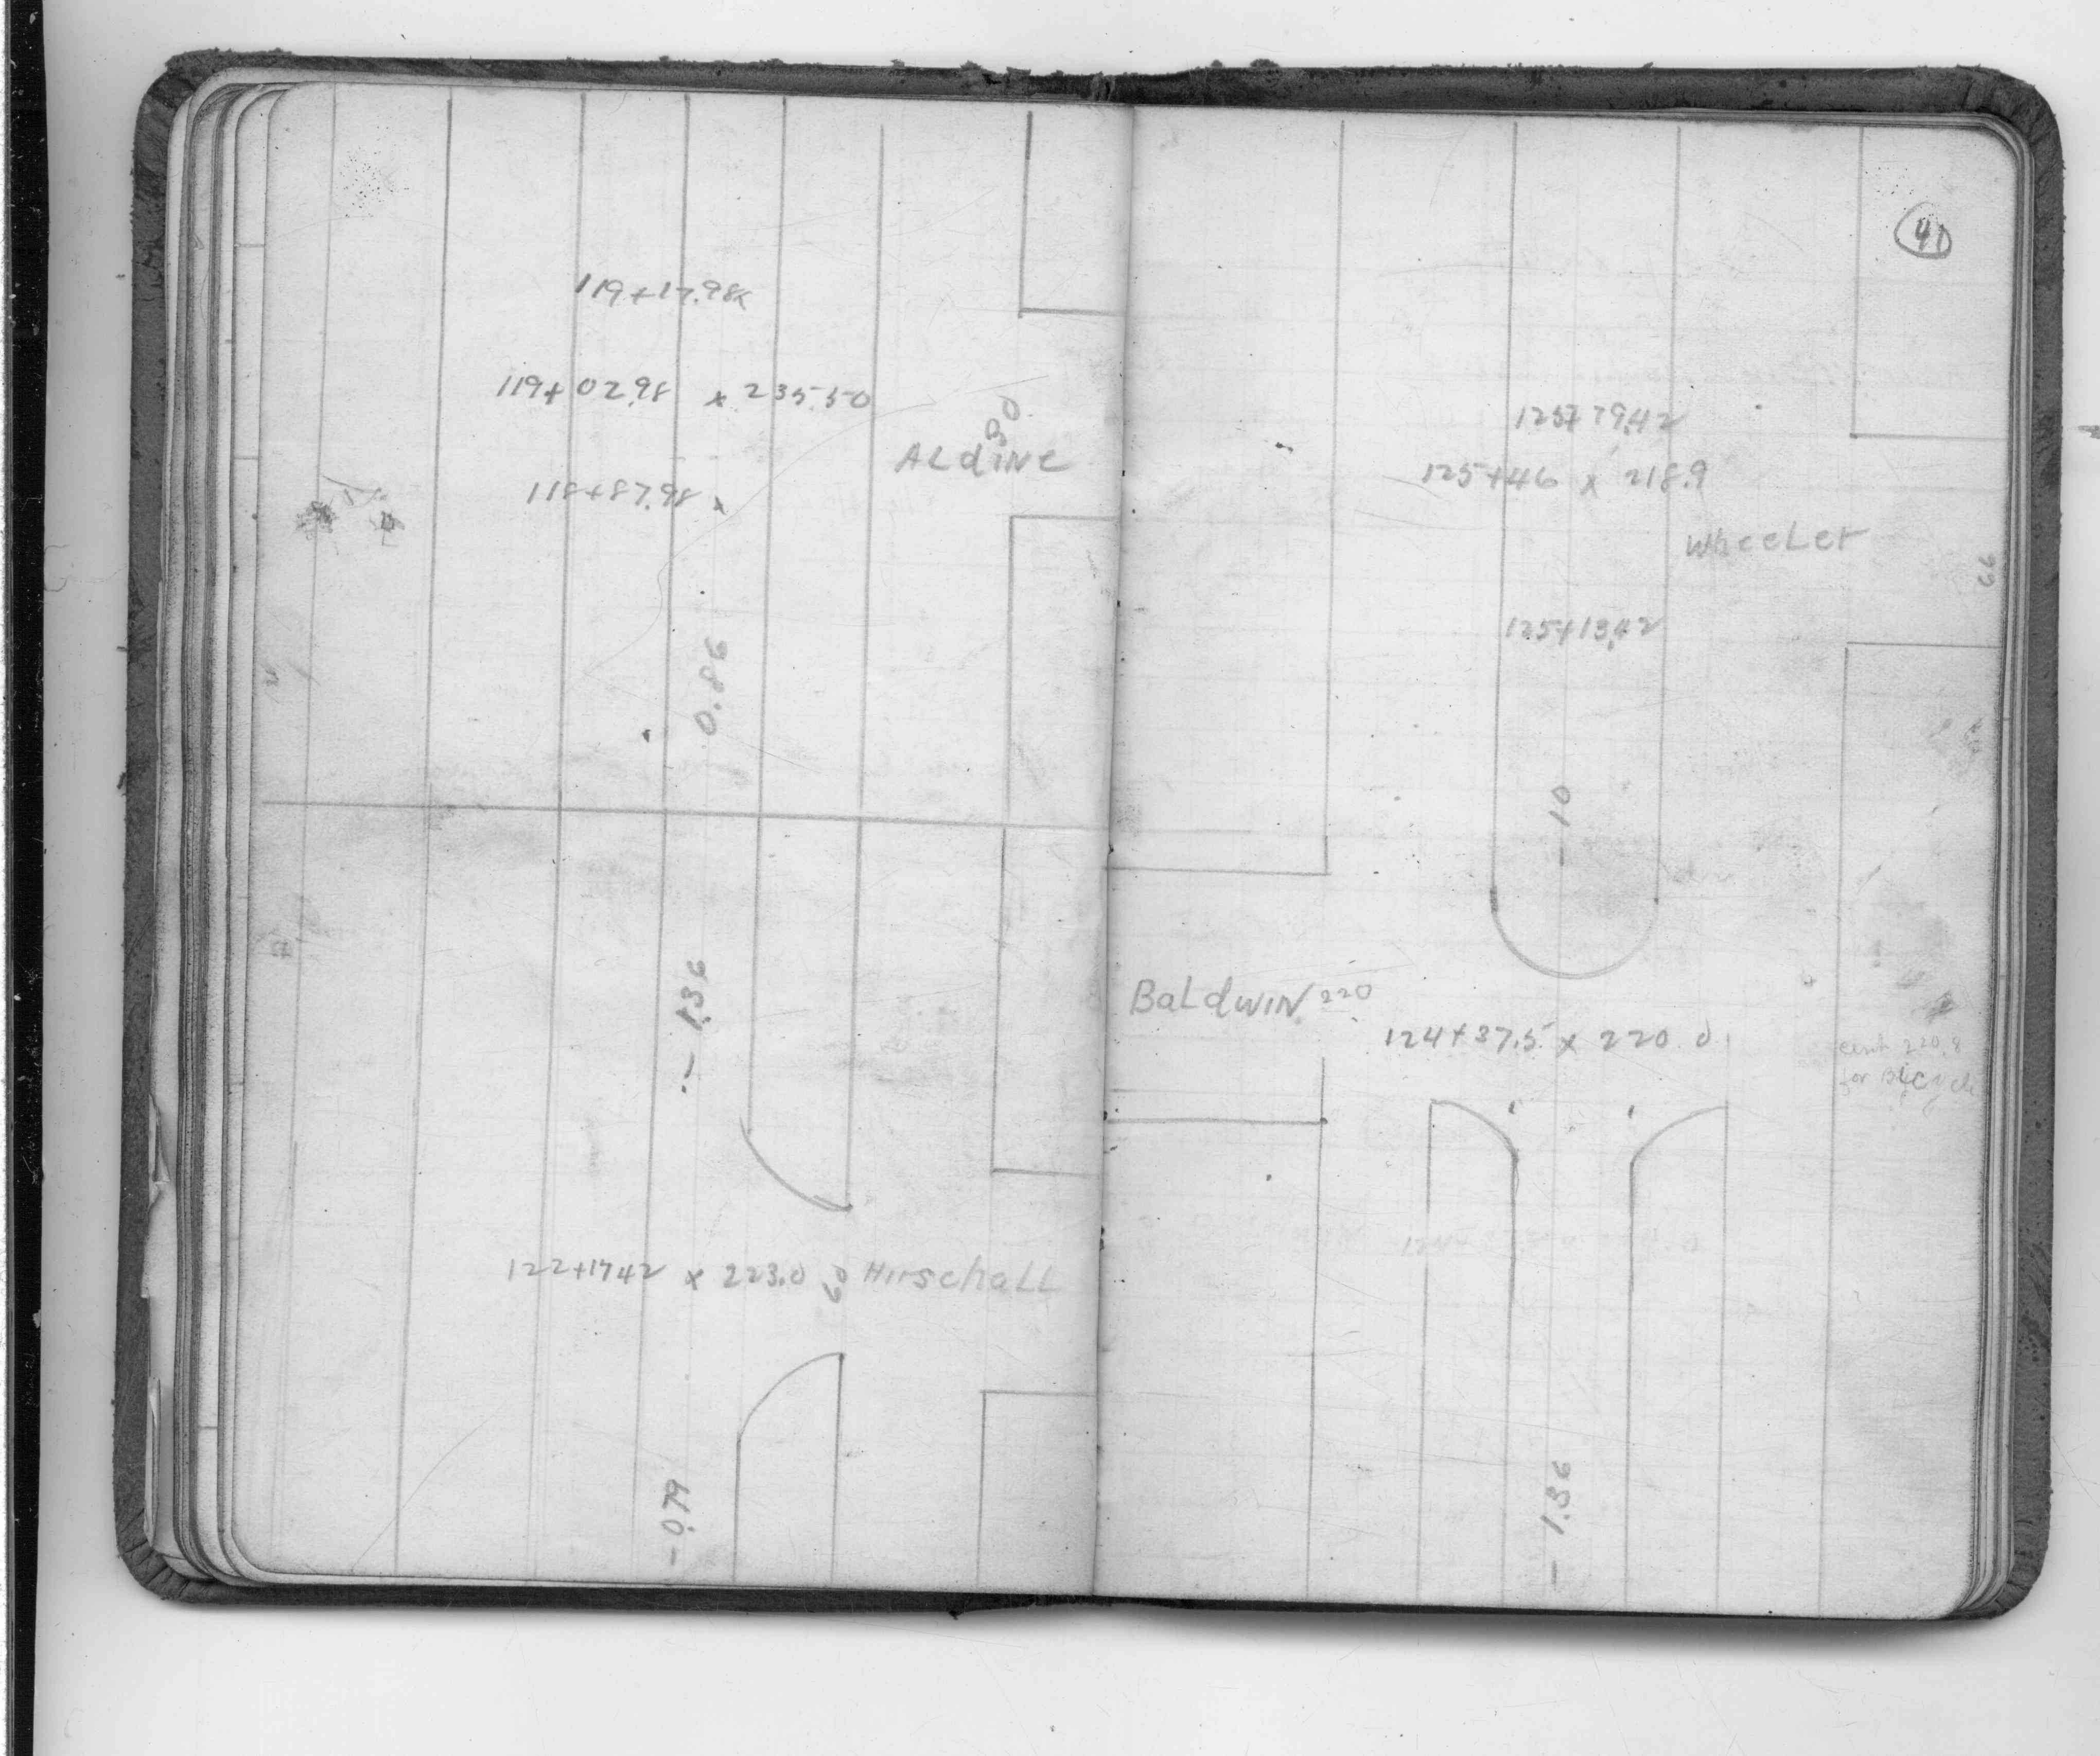 119+17.98x
119+02.98 x 235.50
30
ALdiNe
118+87.98 x
0.86
- 1.36
122+17.42 x 223.0 60 HirschaLL
- 0.79
41
125+79.42
125+46 x 218.9
WheeLer
66
125+13.42
- 10
BaLdwiN 220
124+37.5 x 220.0
cent 220.8
for Bicycle
- 1.36